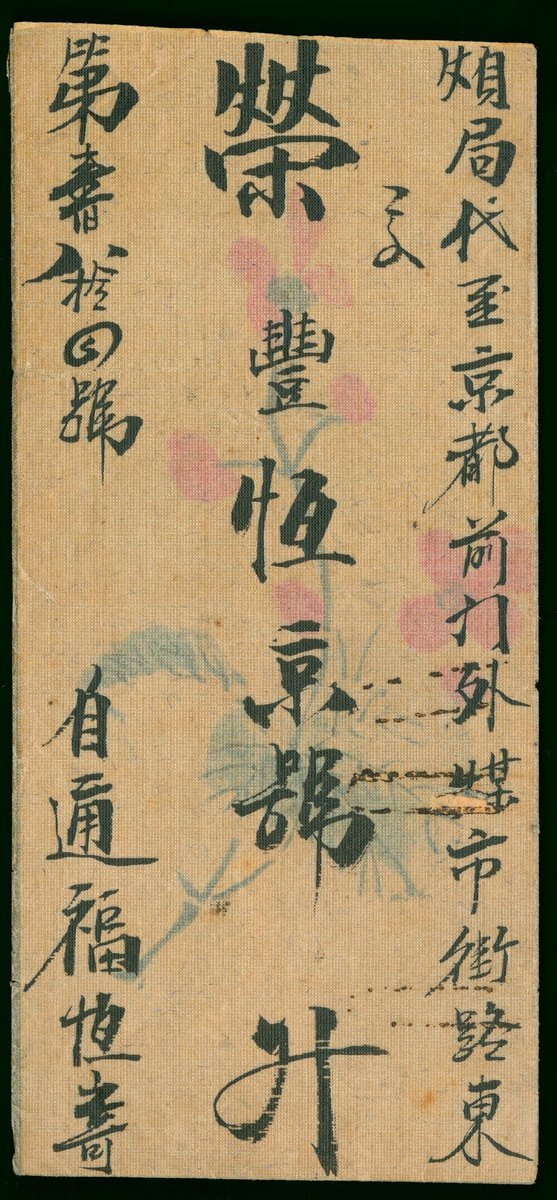 煩局代至京都前门外煤市街路東
交
榮豐恒京號 升
第壹百八拾四號 自福恒寄